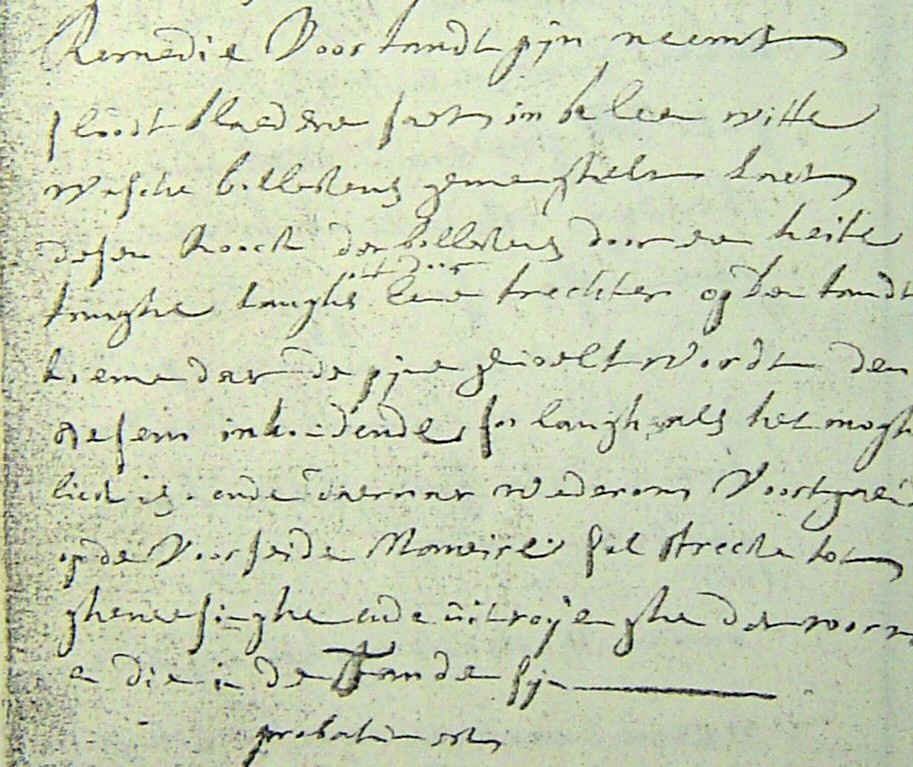 Remedie Voor tandt pijn neemt
bladere saet in
witte
wasche bollekens gemenghelt laet
desen Roock der bollekens door een heite
tanghe langhs uut door eene trechter op den tandt
komen daer de pijne gevoelt wordt den
desem inhoudende, so langh als het mogh
lick is. ende daernar wederom Voort
op de Voorseide Maniere sal strecke tot
ghenesinghe ende uitroijenghe der worm
e die in de Tanden sijn
probatum est